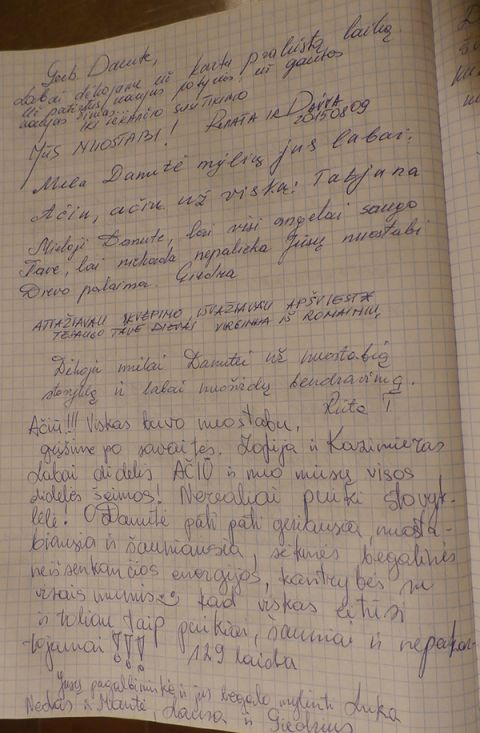 Gerb. Danute,
Labai dėkojame už kartu praleistą laiką
už patirtus naujus potyrius, už gautas
naujas žinias.
Iki sekančio susitikimo
Jūs nuostabi! Renata ir Daiva
20150809
Miela Danutė myliu jus labai.
Ačiū, ačiū už viską! Tatjana
Mieloji Danute, lai visi angelai saugo
Tave, lai niekada nepalieka Jūsų nuostabi
Dievo palaima. Giedra
ATVAŽIAVAU ĮKVĖPIMO, IŠVAŽIAVAU APŠVIESTA
TESAUGO TAVE DIEVAI VIRGINIJA IŠ ROMAINIŲ
Dėkoji mielai Danutei už nuostabią
stovyklą ir labai nuoširdų bendravimą.
Rūta T
Ačiū!!! Viskas buvo nuostabu,
grįšime po savaitės. Zofija ir Kazimieras
Labai didelis AČIŪ ir nuo mūsų visos
didelės šeimos! Nerealiai puiki stovyk-
lėlė! O Danutė pati pati geriausia, nuosta-
biausia ir šauniausia, sėkmės begalinės
neišsenkančios energijos, kantrybės su
visais mumis kad viskas eitųsi
ir toliau taip puikiai, šauniai ir nepakar-
tojamai!!! 129 laida
Jūsų pagalbininkė ir jus begalo mylinti Luka
Nedas ir Mantė, Laura ir Giedrius